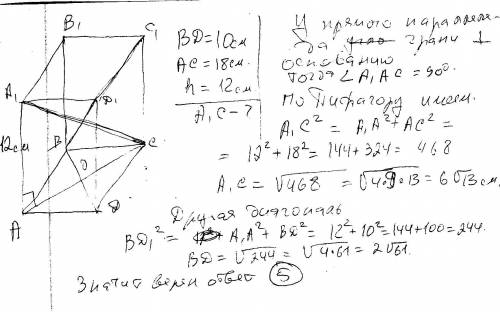 B₁ C₁
A₁ D₁
B C
O
12см
A D
BD=10см
AC=18см.
h=12см
A₁C-?
У прямого параллеле-
да грани ⊥
основанию
тогда ∠A₁AC=90°.
по Пифагору имеем.
A₁C² = A₁A²+AC² =
= 12²+18²=144+324= 468
A₁C=√468 = √4·9·13=6√13см,
Другая диагональ
BD₁² = A₁A²+BD²= 12²+10²=144+100=244.
BD=√244 =√4·61=2√61.
Значит верен ответ 5